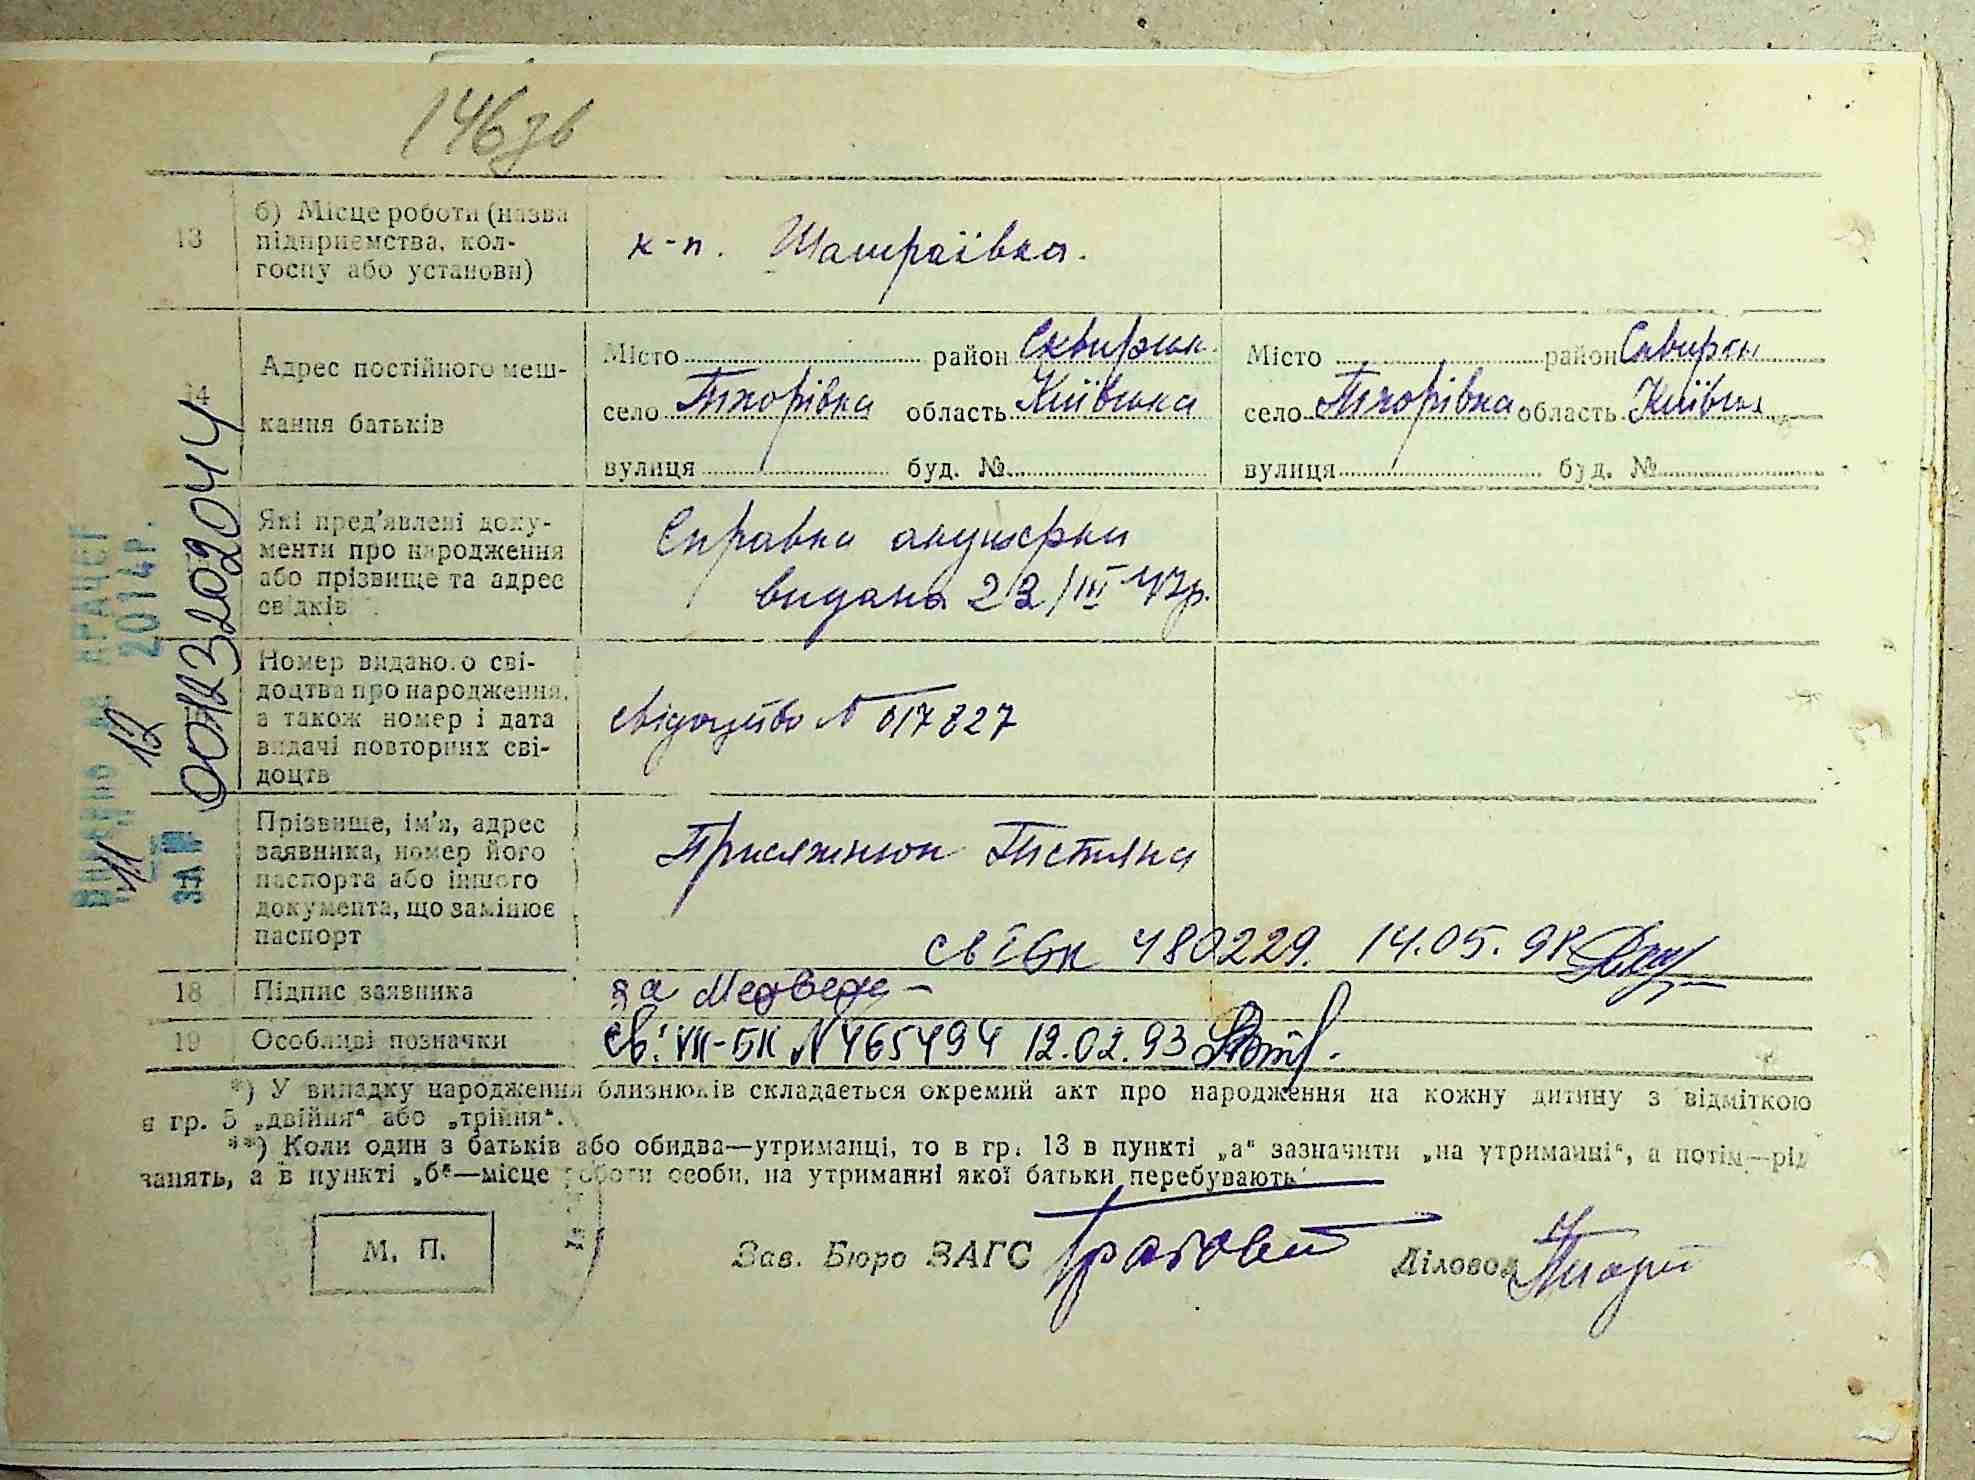 146 зв
13
б) Місце роботи (назва
підприємства, кол-
госпу або установи)
к-п. Шамраївка.
14
Адрес постійного меш-
кання батьків
Місто район Сквирськ.
село Тхорівка область Київська
вулиця буд. №
Місто район Сквирськ
село Тхорівка область Київськ
вулиця буд. №
Які пред'явлені доку-
менти про народження
або прізвище та адрес
свідків
Справка акушерки
видана 22/III 47р.
Номер виданого сві-
доцтва про народження,
а також номер і дата
видачі повторних сві-
доцтв
свідоцтво № 017827
Прізвище, ім'я, адрес
заявника, номер його
паспорта або іншого
документа, що замінює
паспорт
Присяжнюк Тетяна
св I БК 480229. 14.05.98
18
Підпис заявника
за Медведь
19
Особливі позначки
Св: VII-БК N465494 12.02.93
*) У випадку народження близнюків складається окремий акт про народження на кожну дитину з відміткою
в гр. 5 „двійня“ або „трійня“.
**) Коли один з батьків або обидва—утриманці, то в гр. 13 в пункті „а“ зазначити „на утриманні“, а потім—рід
занять, а в пункті „б“—місце роботи особи, на утриманні якої батьки перебувають.
М. П.
Зав. Бюро ЗАГС
Діловод
2014Р.
11 12
00123202044